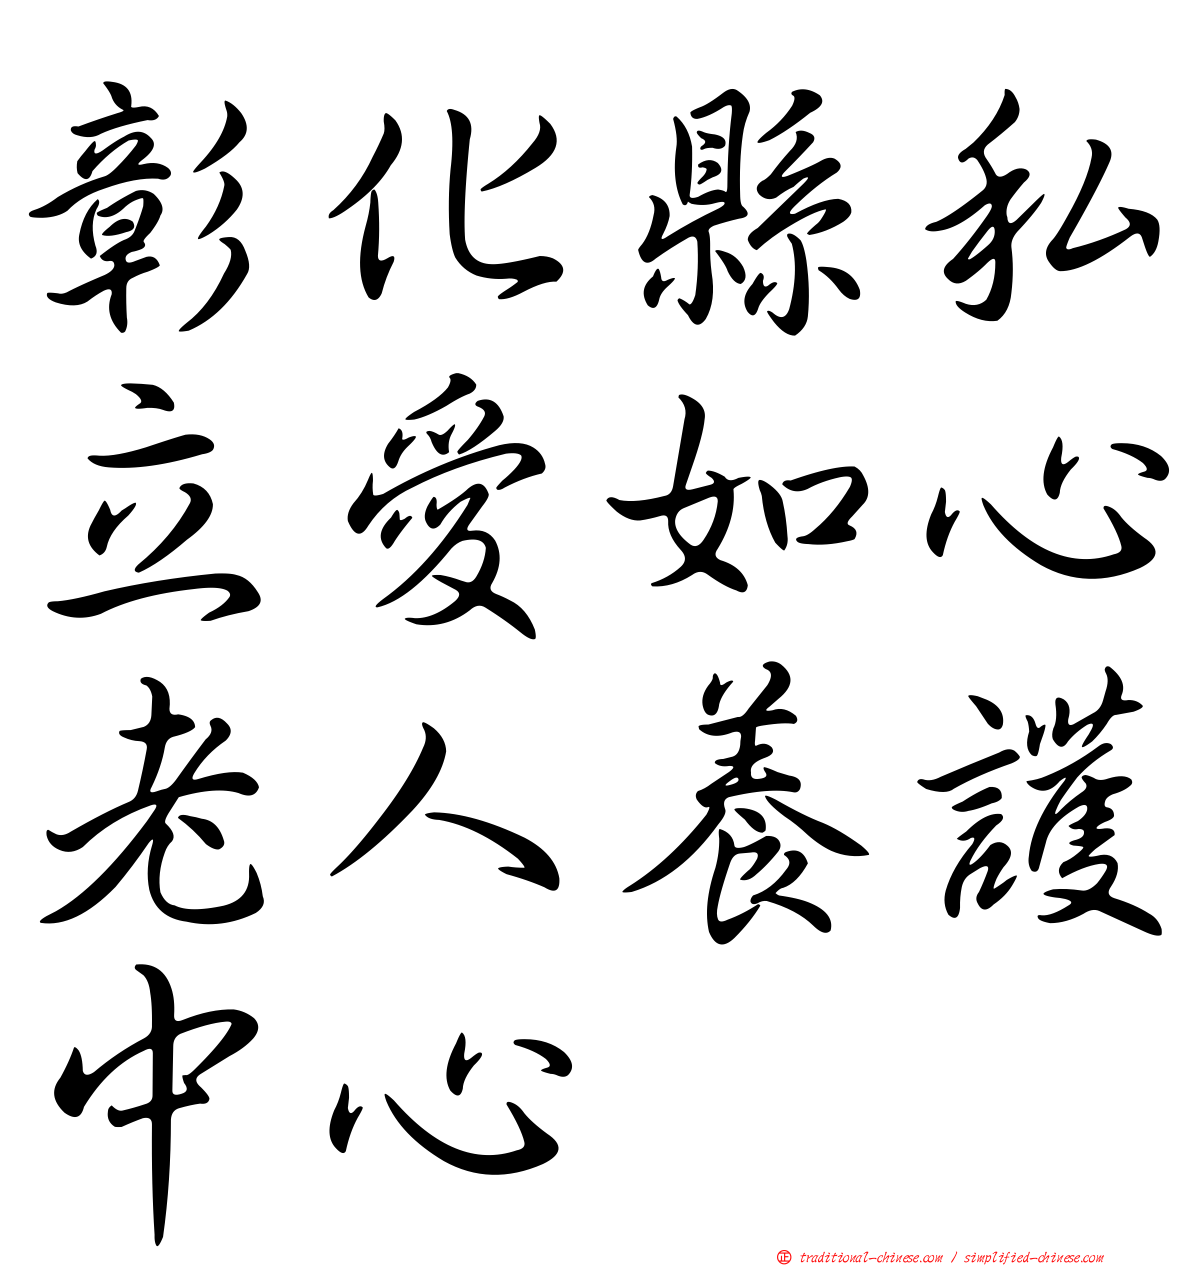 彰化縣私
立愛如心
老人養護
中心
㊣ traditional-chinese.com / simplified-chinese.com